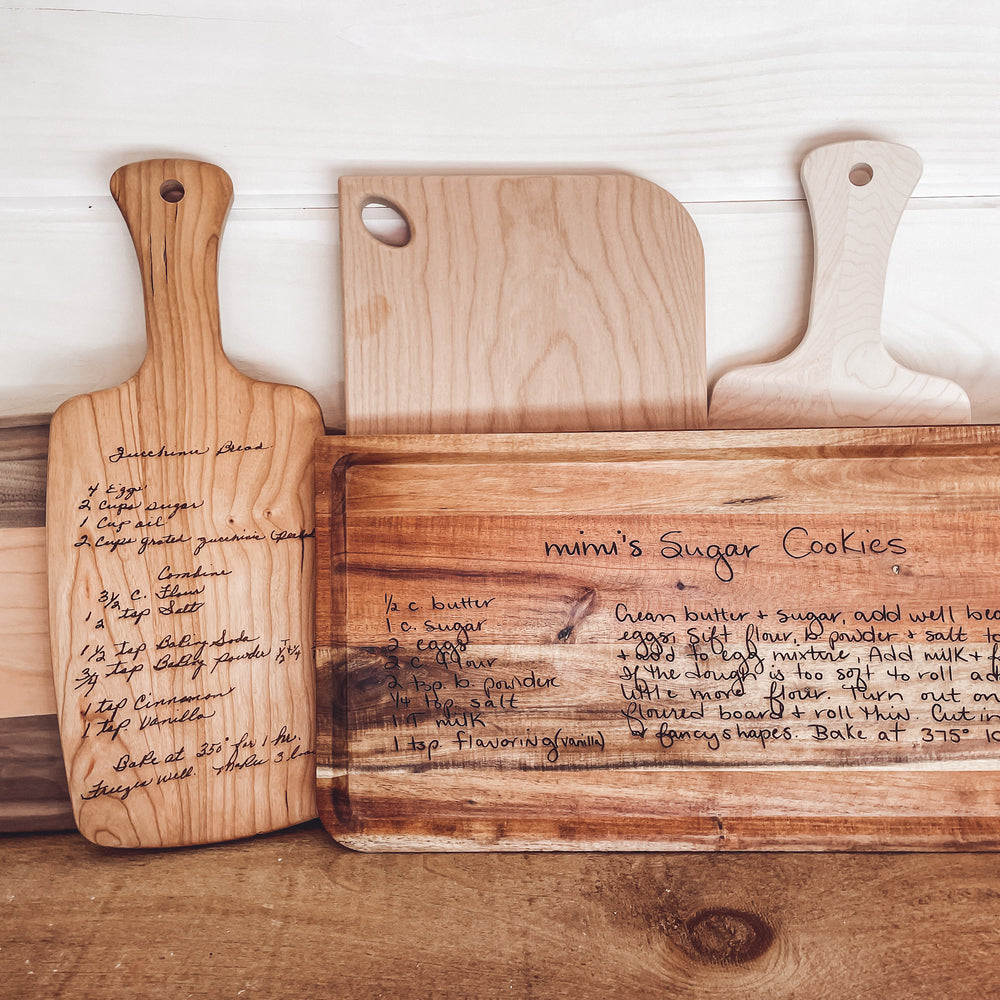 Zucchini Bread
4 Eggs
2 Cups sugar
1 Cup oil
2 Cups grated zucchini (peeled
Combine
3½ c. Flour
1½ tsp Salt
1½ tsp Baking Soda
¾ tsp Baking Powder
1 tsp Cinnamon
1 tsp. Vanilla
Bake at 350° for 1 hr.
Freezes well. Makes 3 loa
mimi's Sugar Cookies
½ c. butter
1 c. sugar
2 eggs
2 c. flour
2 tsp. b. powder
¼ tsp. salt
1 T milk
1 tsp. flavoring (vanilla)
Cream butter + sugar, add well bea
eggs, sift flour, b. powder + salt to
+ add to egg mixture, Add milk + f
If the dough is too soft to roll ad
little more flour. Turn out on
floured board + roll thin. Cut in
fancy shapes. Bake at 375° 10